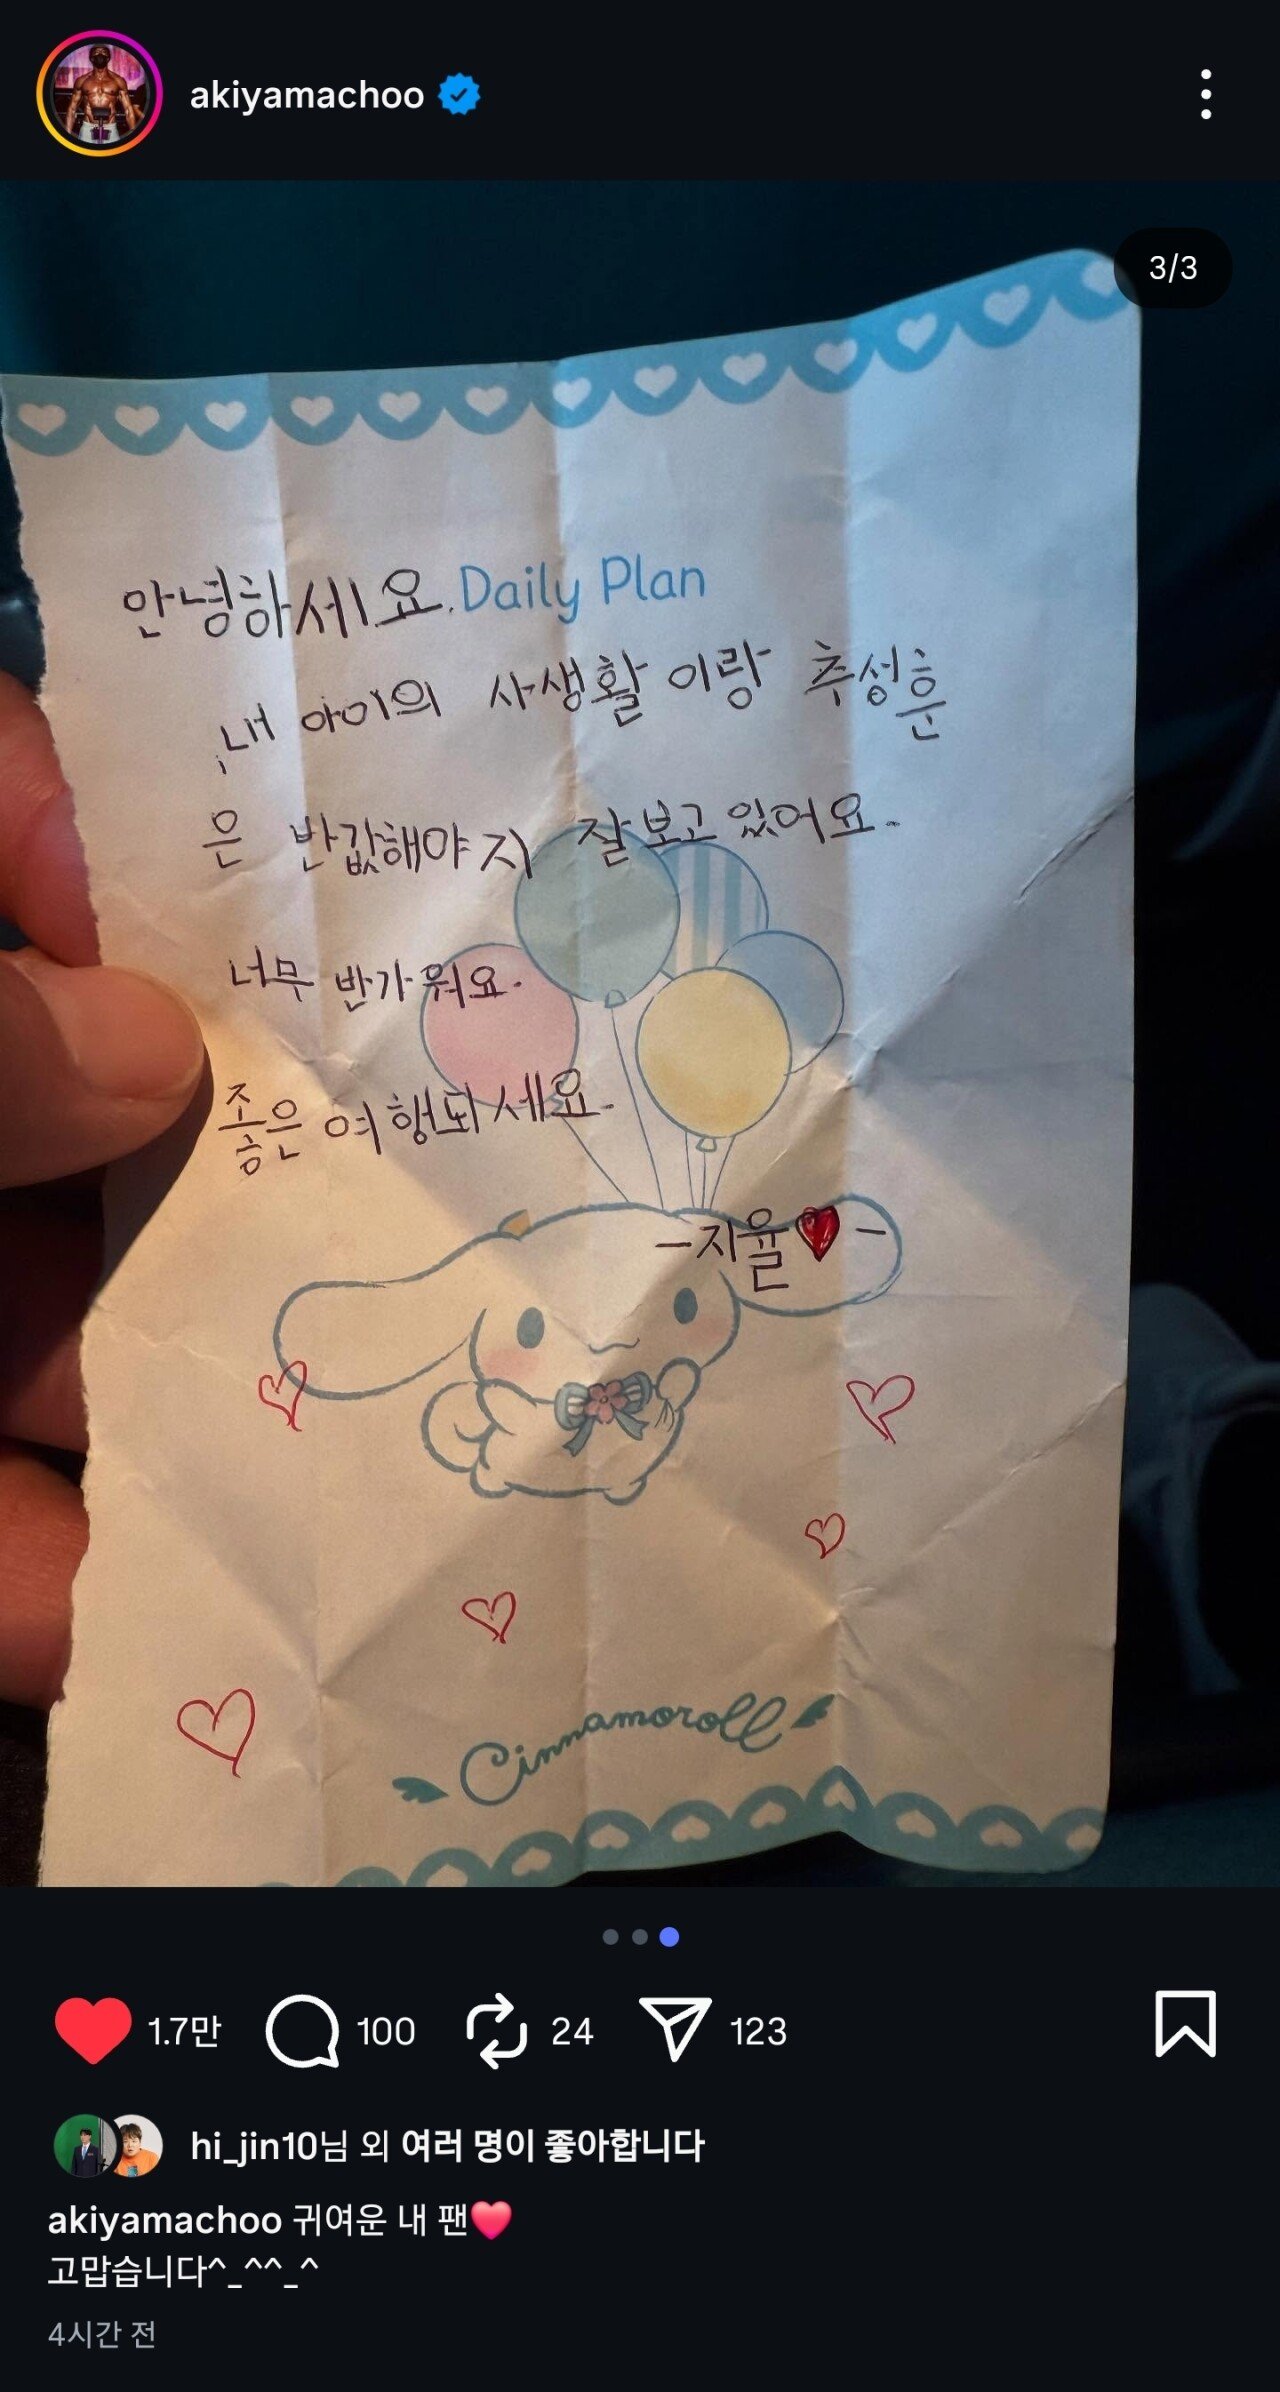 akiyamachoo
3/3
안녕하세요.
Daily Plan
내 아이의 사생활 이랑 추성훈
은 반값해야지 잘보고있어요.
너무 반가워요.
좋은여행되세요.
-지율♥-
Cinnamoroll
1.7만 100 24 123
hi_jin10님 외 여러 명이 좋아합니다
akiyamachoo 귀여운 내 팬❤️
고맙습니다^_^^_^
4시간 전